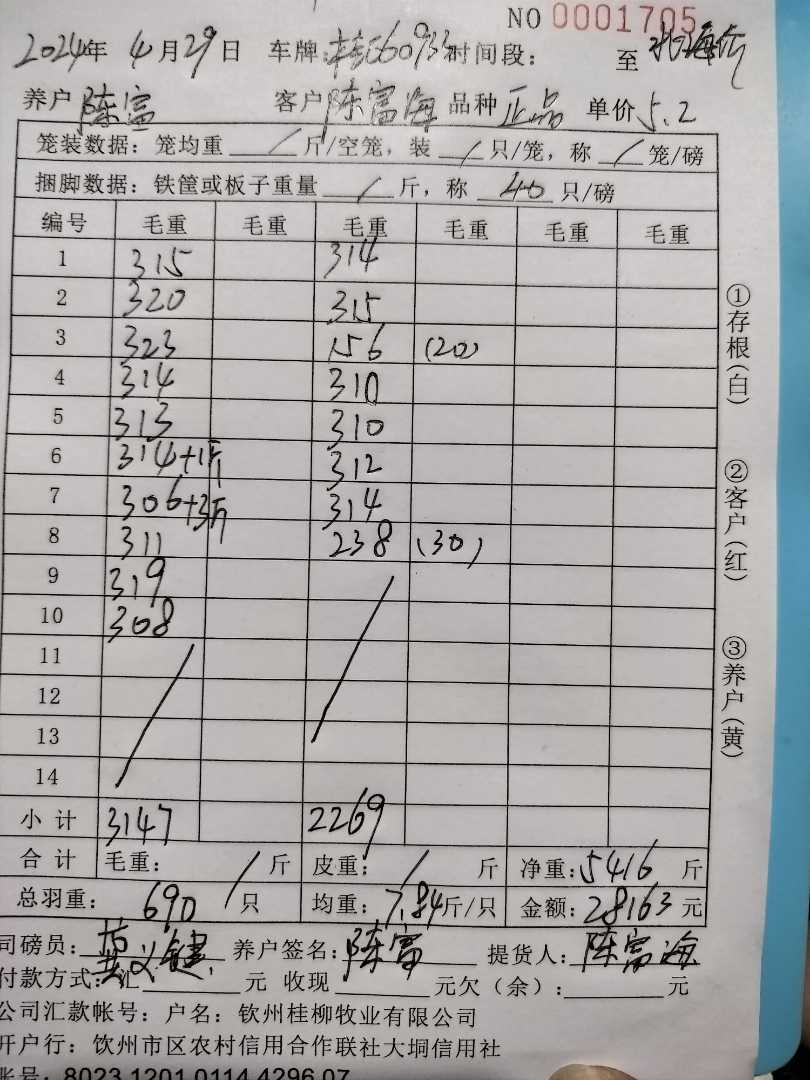 NO 0001705
2024年 4月29日 车牌:桂E60933 时间段: 至 北海市
养户 陈富 客户 陈富海 品种 正品 单价 5.2
笼装数据:笼均重 / 斤/空笼,装 / 只/笼,称 / 笼/磅
捆脚数据:铁筐或板子重量 / 斤,称 40 只/磅
编号 毛重 毛重 毛重 毛重 毛重 毛重
1 315 314
2 320 315
3 323 156 (20)
4 314 310
5 313 310
6 314+1斤 312
7 306+3斤 314
8 311 238 (30)
9 319
10 308
11
12
13
14
小计 3147 2269
合计 毛重: / 斤 皮重: / 斤 净重:5416 斤
总羽重: 690 只 均重:7.84斤/只 金额:28163元
司磅员: 黄义键 养户签名:陈富 提货人:陈富海
付款方式:汇 元 收现 元欠(余): 元
公司汇款帐号:户名:钦州桂柳牧业有限公司
开户行:钦州市区农村信用合作联社大垌信用社
帐号:8023 1201 0114 4296 07
①存根(白)
②客户(红)
③养户(黄)